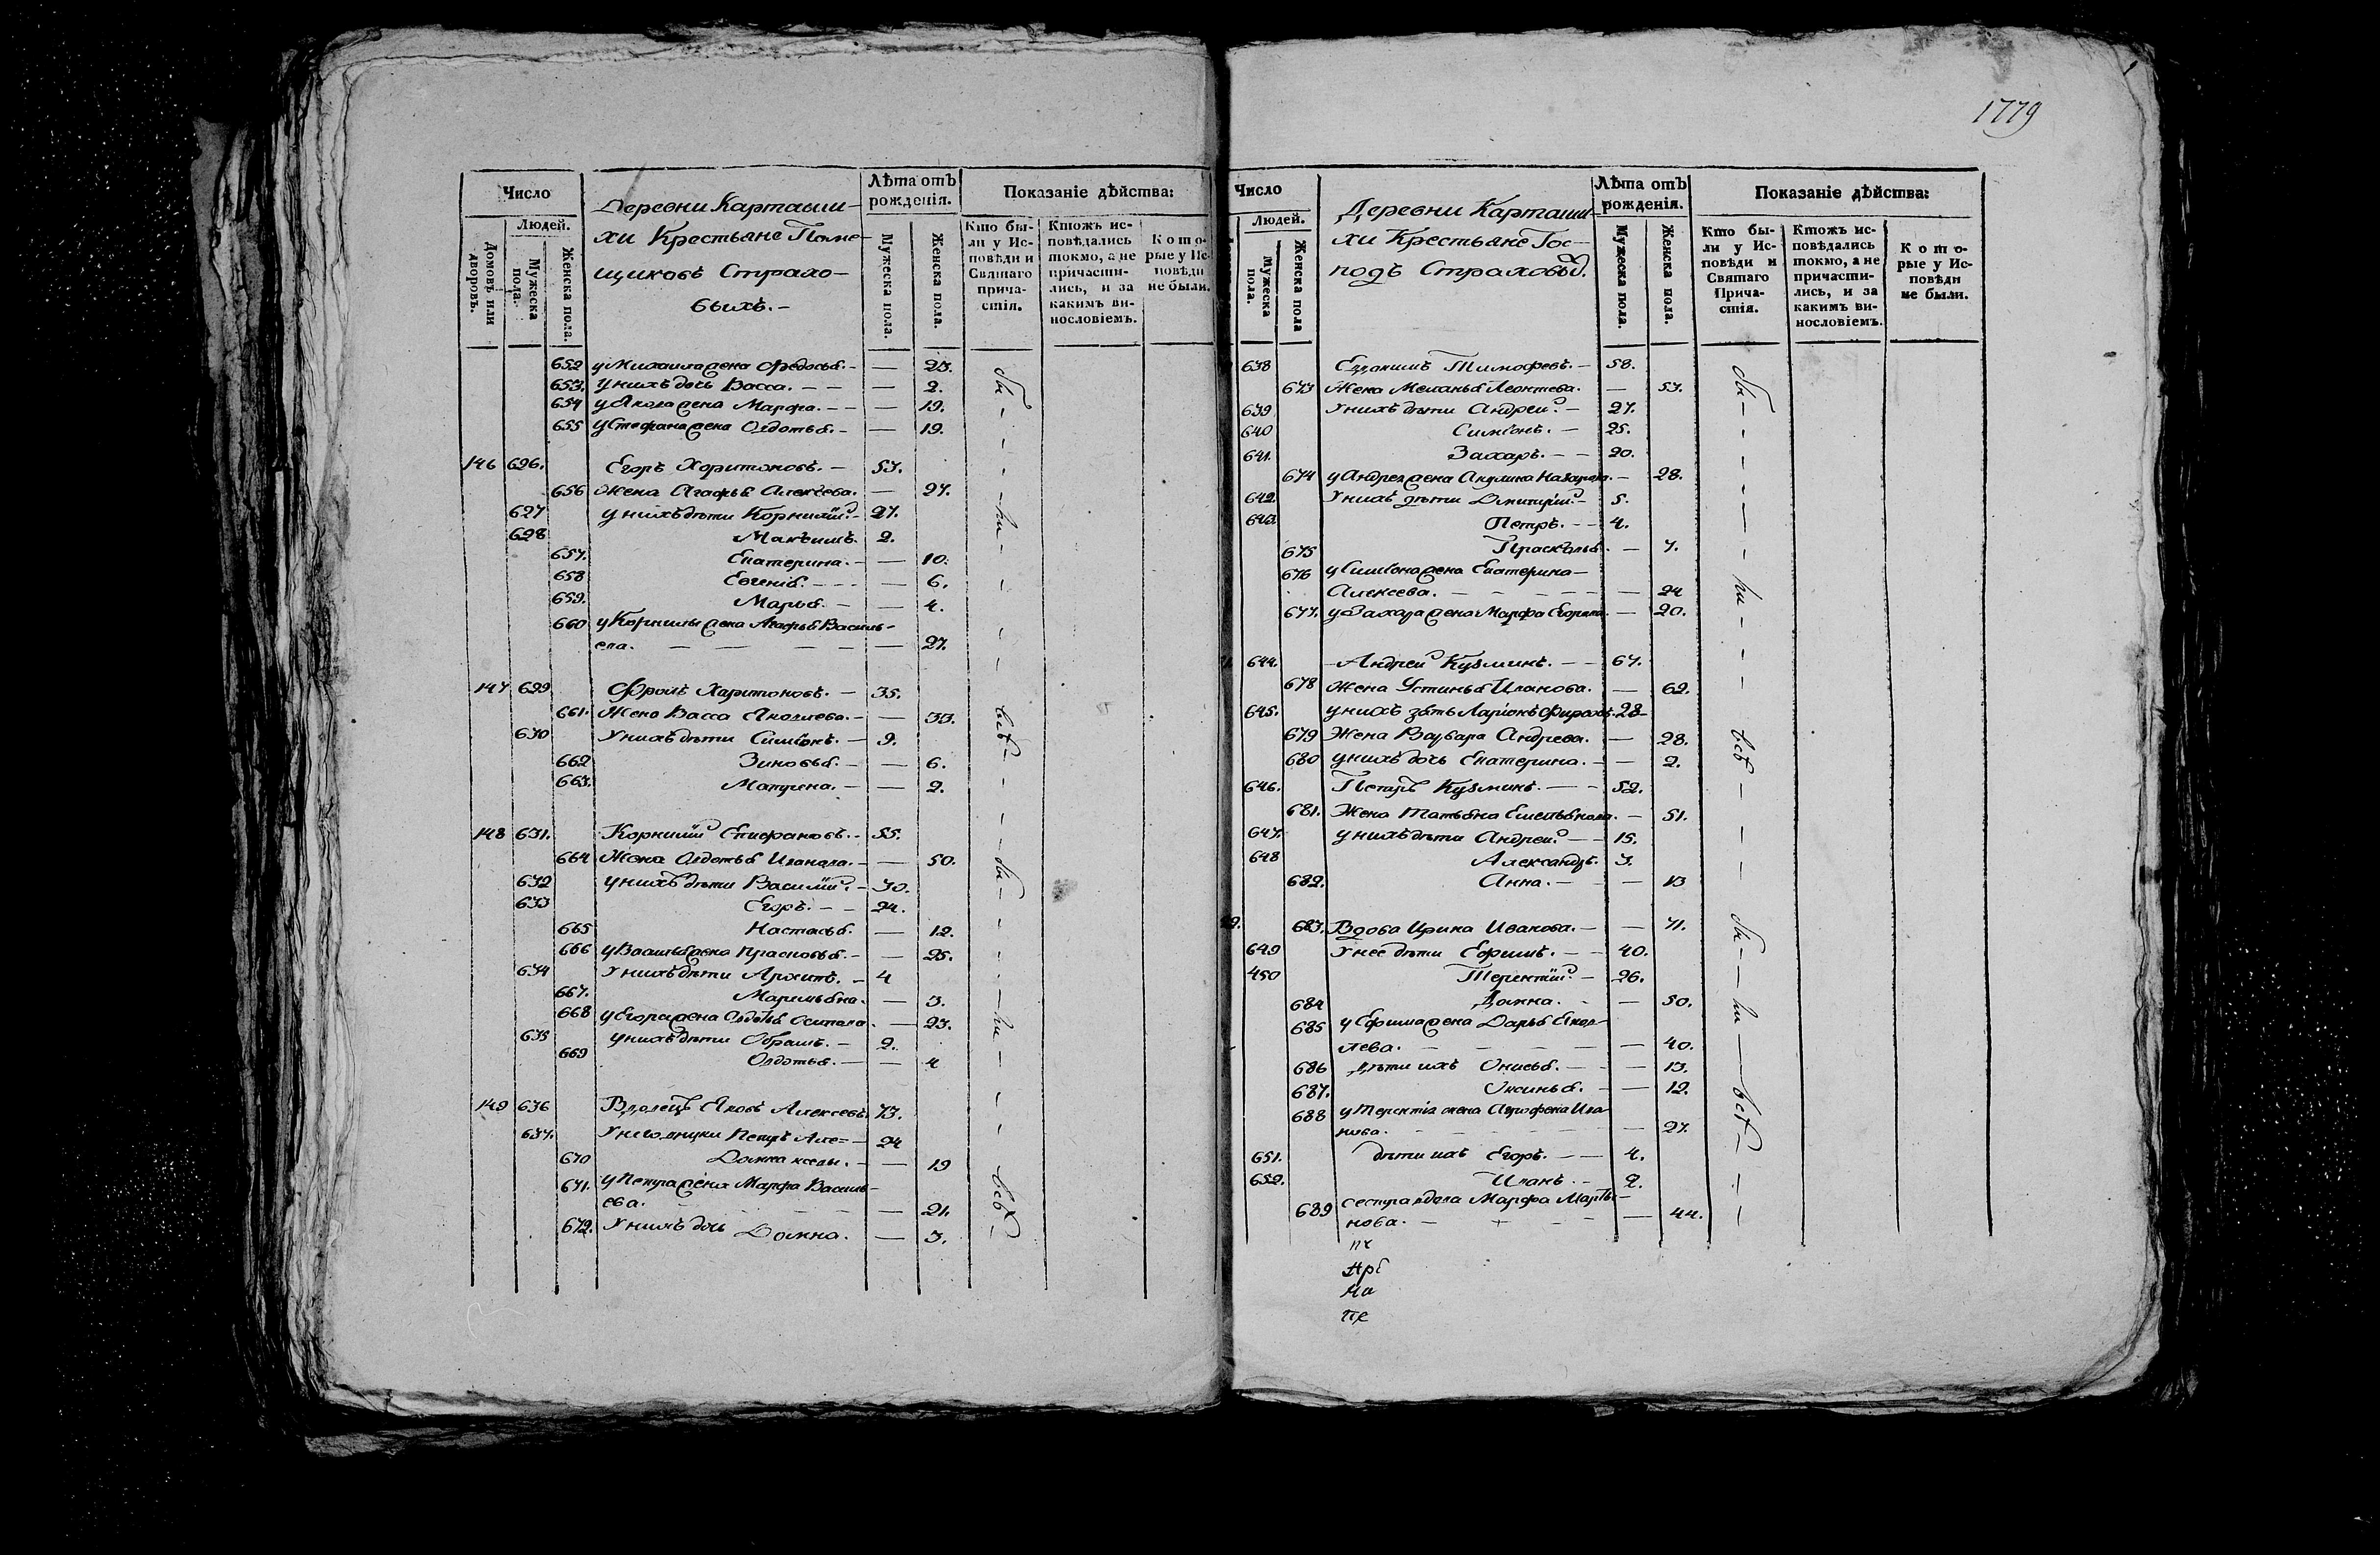 1779
Число
Людей.
Домовъ или дворовъ.
Мужеска пола.
Женска пола.
Деревни Карташи-
хи Крестьяне Поме-
щиковъ Страхо-
выхъ. -
Лѣта отъ рожденія.
Мужеска пола.
Женска пола.
Показаніе дѣйства:
Кто бы-
ли у Ис-
повѣди и
Святаго
прича-
стія.
Ктожъ ис-
повѣдались
токмо, а не
причасти-
лись, и за
какимъ ви-
нословіемъ.
Кото-
рые у Ис-
повѣди
не были.
652 у Михаила жена Федосья. - — 23.
653. У нихъ дочь Васса. - - — 2.
654 у Якова жена Марфа. - - — 19.
655 у Стефана жена Авдотья. - — 19.
146 626. Егоръ Харитоновъ. - 53.
656 Жена Агафья Алексѣева. — 27.
627 у нихъ дѣти Корнилій. - 27.
628 Максимъ. 2.
657. Екатерина. - — 10.
658 Евгенія. - - - — 6.
659. Марья. - — 4.
660 у Корнилы жена Агафья Василь-
ева. — — — — — 27.
147 629 Фролъ Харитоновъ. - 35.
661. Жена Васса Яковлева. - — 33.
630 У нихъ дѣти Симіонъ. - 9.
662 Зиновья. - — 6.
663. Матрена. - — 2.
148 631. Корнилій Епифановъ. - 55.
664 Жена Авдотья Иванова. - — 50.
632 у нихъ дѣти Василій. - 30.
633 Егоръ. - - 24.
665 Настасья. — 12.
666 у Василья жена Прасковья. - — 25.
634 У нихъ дѣти Архипъ. - 4
667. Маремьяна. — 3.
668 у Егора жена Авдотья Осипова. — 23.
635 у нихъ дѣти Абрамъ. - 2.
669 Авдотья. - — 4
149 636 Вдовецъ Яковъ Алексѣевъ 73.
637. У него внуки Петръ Але= - 24
670 Домна ксевы. - — 19
671. у Петра жена Марфа Василь-
ева. - - - — 21.
672. У нихъ дочь Домна. — 3.
бы - ли - всѣ - бы - ли - всѣ
Число
Людей.
Мужеска пола.
Женска пола
Деревни Карташи-
хи Крестьяне Гос-
подъ Страховыхъ.
Лѣта отъ рожденія.
Мужеска пола.
Женска пола.
Показаніе дѣйства:
Кто бы-
ли у Ис-
повѣди и
Святаго
Прича-
стія.
Ктожъ ис-
повѣдались
токмо, а не
причасти-
лись, и за
какимъ ви-
нословіемъ.
Кото-
рые у Ис-
повѣди
не были.
638 Евдокимъ Тимофеевъ. - 58.
673 Жена Меланья Леонтева. — 53.
639 У нихъ дѣти Андрей. - 27.
640 Симіонъ. - 25.
641. Захаръ. - - 20.
674 у Андрея жена Акулина Назарова. - 28.
642. У нихъ дѣти Димитрій. - 5.
643. Петръ. - - 4.
675 Прасковья. - 7.
676 у Симіона жена Екатерина -
Алексеева. - - - — 24
677. у Захара жена Марфа Егорова. — 20.
644. Андрей Кузминъ. - - 67.
678 Жена Устинья Иванова. — 62.
645. у нихъ зять Ларіонъ Фирсовъ. 28-
679 Жена Варвара Андреева. — 28.
680 у нихъ дочь Екатерина. - — 2.
646. Петръ Кузминъ. - - 52.
681. Жена Татьяна Емельянова. — 51.
647. у нихъ дѣти Андрей. - - 15.
648 Александръ. 3.
682. Анна. - — 13
683. Вдова Ирина Иванова. - — 71.
649 У нее дѣти Ефимъ. - - 40.
450 Терентій. - 26.
684 Домна. - — 50.
685 у Ефима жена Дарья Яков-
лева. - - - — 40.
686 дѣти ихъ Онисья. - — 13.
687. Оксинья. - — 12.
688 у Терентія жена Агрофена Ива-
нова. - - - — 27.
651. дѣти ихъ Егоръ. - - 4.
652. Иванъ. - 2.
689 сестра вдова Марфа Марты-
нова. - - - — 44.
бы - ли - всѣ - бы - ли - всѣ